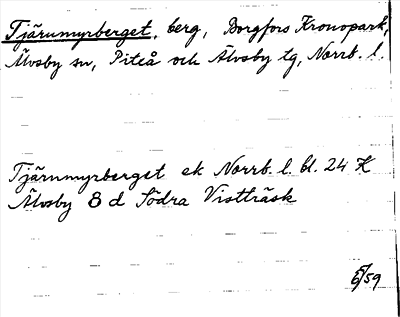 Tjärumyrberget, berg, Borgfors Kronopark,
Älvsby sn, Piteå och Älvsby tg, Norrb. l.
Tjärnmyrberget ek Norrb. l. bl. 24 K
Älvsby 8 d Södra Vistträsk
6/5 59